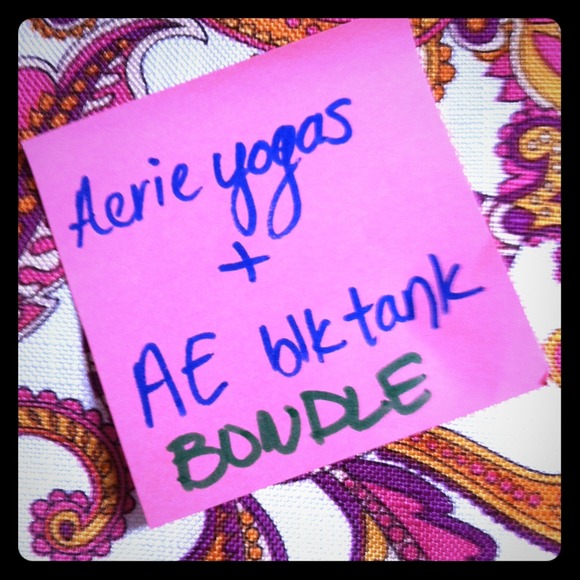 Aerie yogas
+
AE blk tank
BUNDLE